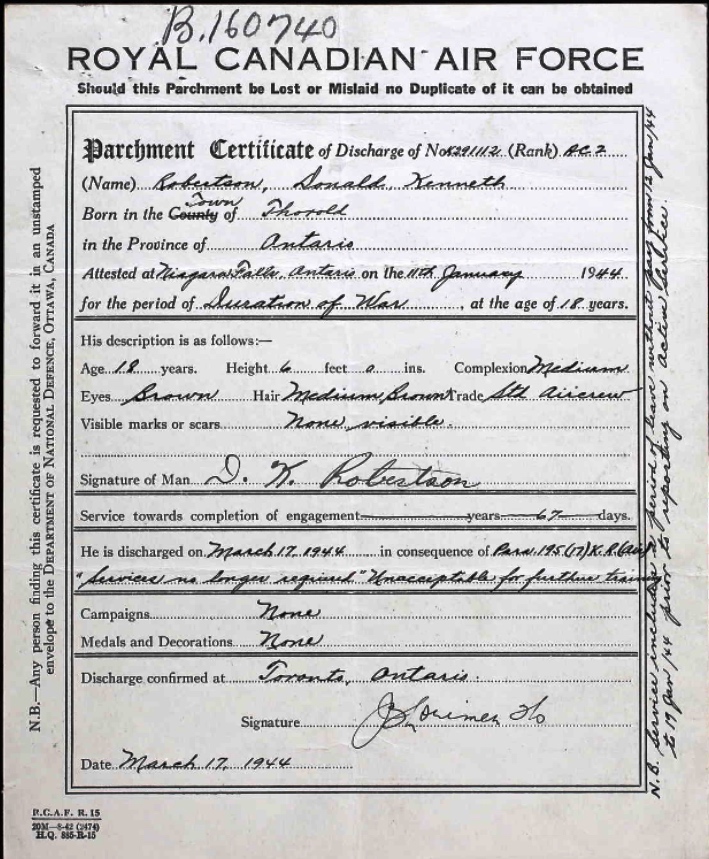 B.160740
ROYAL CANADIAN AIR FORCE
Should this Parchment be Lost or Mislaid no Duplicate of it can be obtained
Parchment Certificate of Discharge of No R291112 (Rank) AC2
(Name) Robertson, Donald Kenneth
Town
Born in the County of Thorold
in the Province of Ontario
Attested at Niagara Falls, Ontario on the 11th January 1944
for the period of Duration of War, at the age of 18 years.
His description is as follows:—
Age 18 years. Height 6 feet 0 ins. Complexion Medium
Eyes Brown Hair Medium Brown Trade Std Aircrew
Visible marks or scars None visible.
Signature of Man D. K. Robertson
Service towards completion of engagement years 67 days.
He is discharged on March 17, 1944 in consequence of Para. 195(17) K.R.(Air)
"Services no longer required" Unacceptable for further training
Campaigns None
Medals and Decorations None
Discharge confirmed at Toronto, Ontario.
Signature
Date March 17, 1944
N.B.—Any person finding this certificate is requested to forward it in an unstamped
envelope to the DEPARTMENT OF NATIONAL DEFENCE, OTTAWA, CANADA
N.B. Service includes a period of leave without pay from 12 Jan/44
to 19 Jan/44 prior to reporting on active service.
R.C.A.F. R. 15
20M—8-42 (2474)
H.Q. 885-R-15